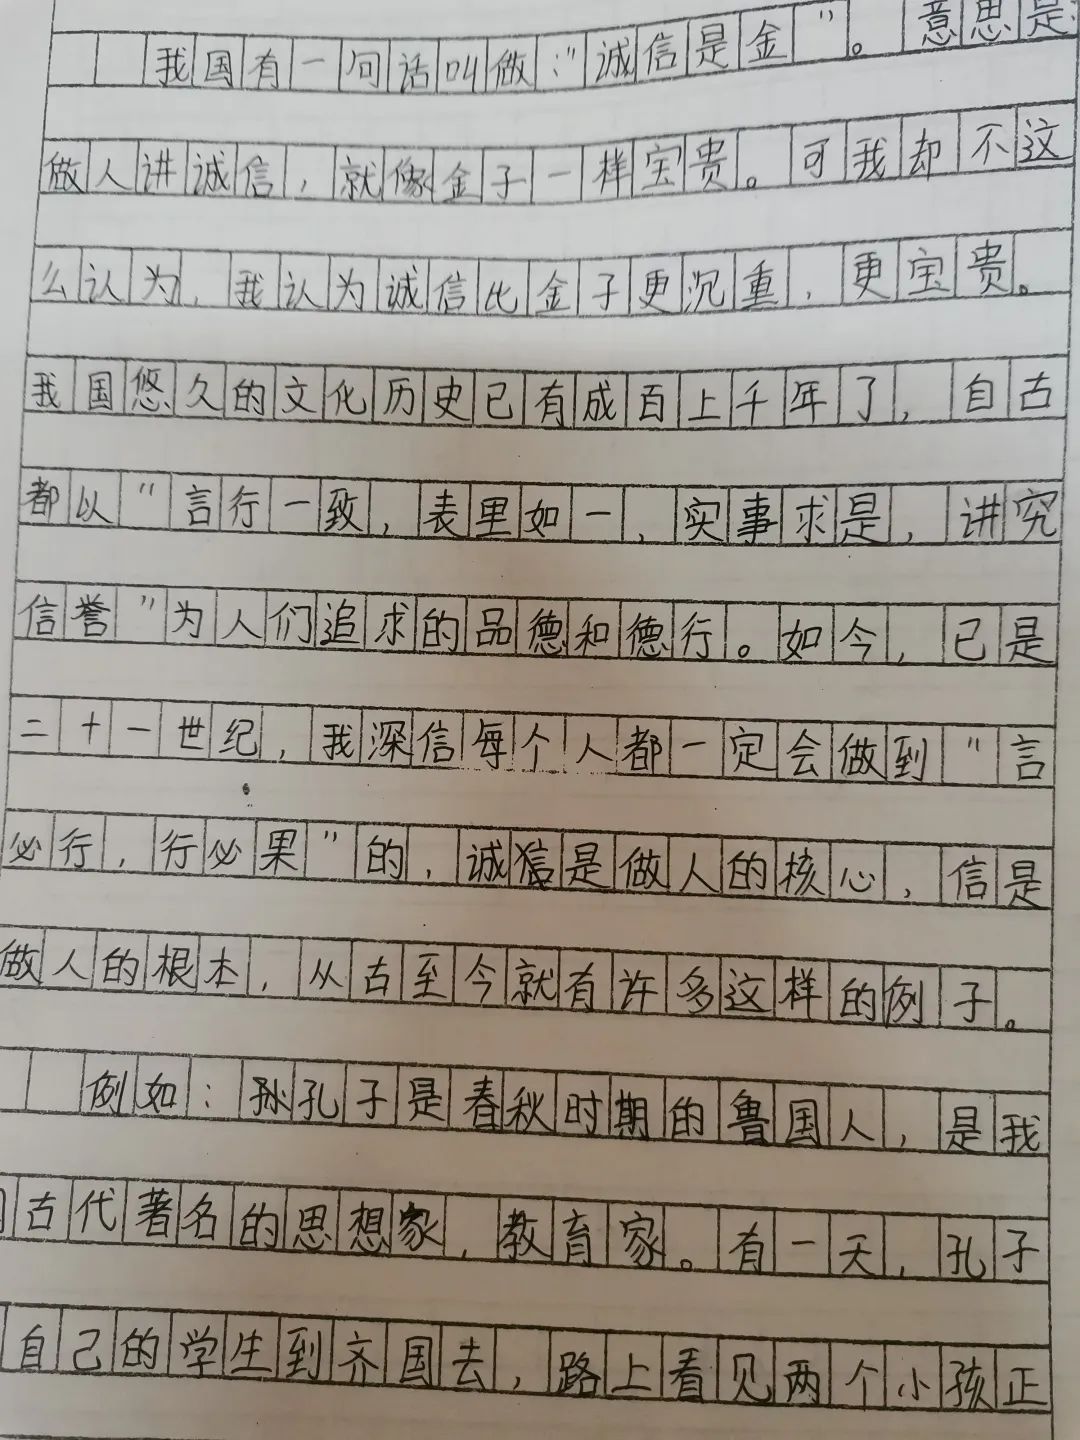 我国有一句话叫做:"诚信是金"。意思是
做人讲诚信,就像金子一样宝贵。可我却不这
么认为,我认为诚信比金子更沉重,更宝贵。
我国悠久的文化历史已有成百上千年了,自古
都以"言行一致,表里如一,实事求是,讲究
信誉"为人们追求的品德和德行。如今,已是
二十一世纪,我深信每个人都一定会做到"言
必行,行必果"的,诚信是做人的核心,信是
做人的根本,从古至今就有许多这样的例子。
例如:孙孔子是春秋时期的鲁国人,是我
古代著名的思想家,教育家。有一天,孔子
自己的学生到齐国去,路上看见两个小孩正